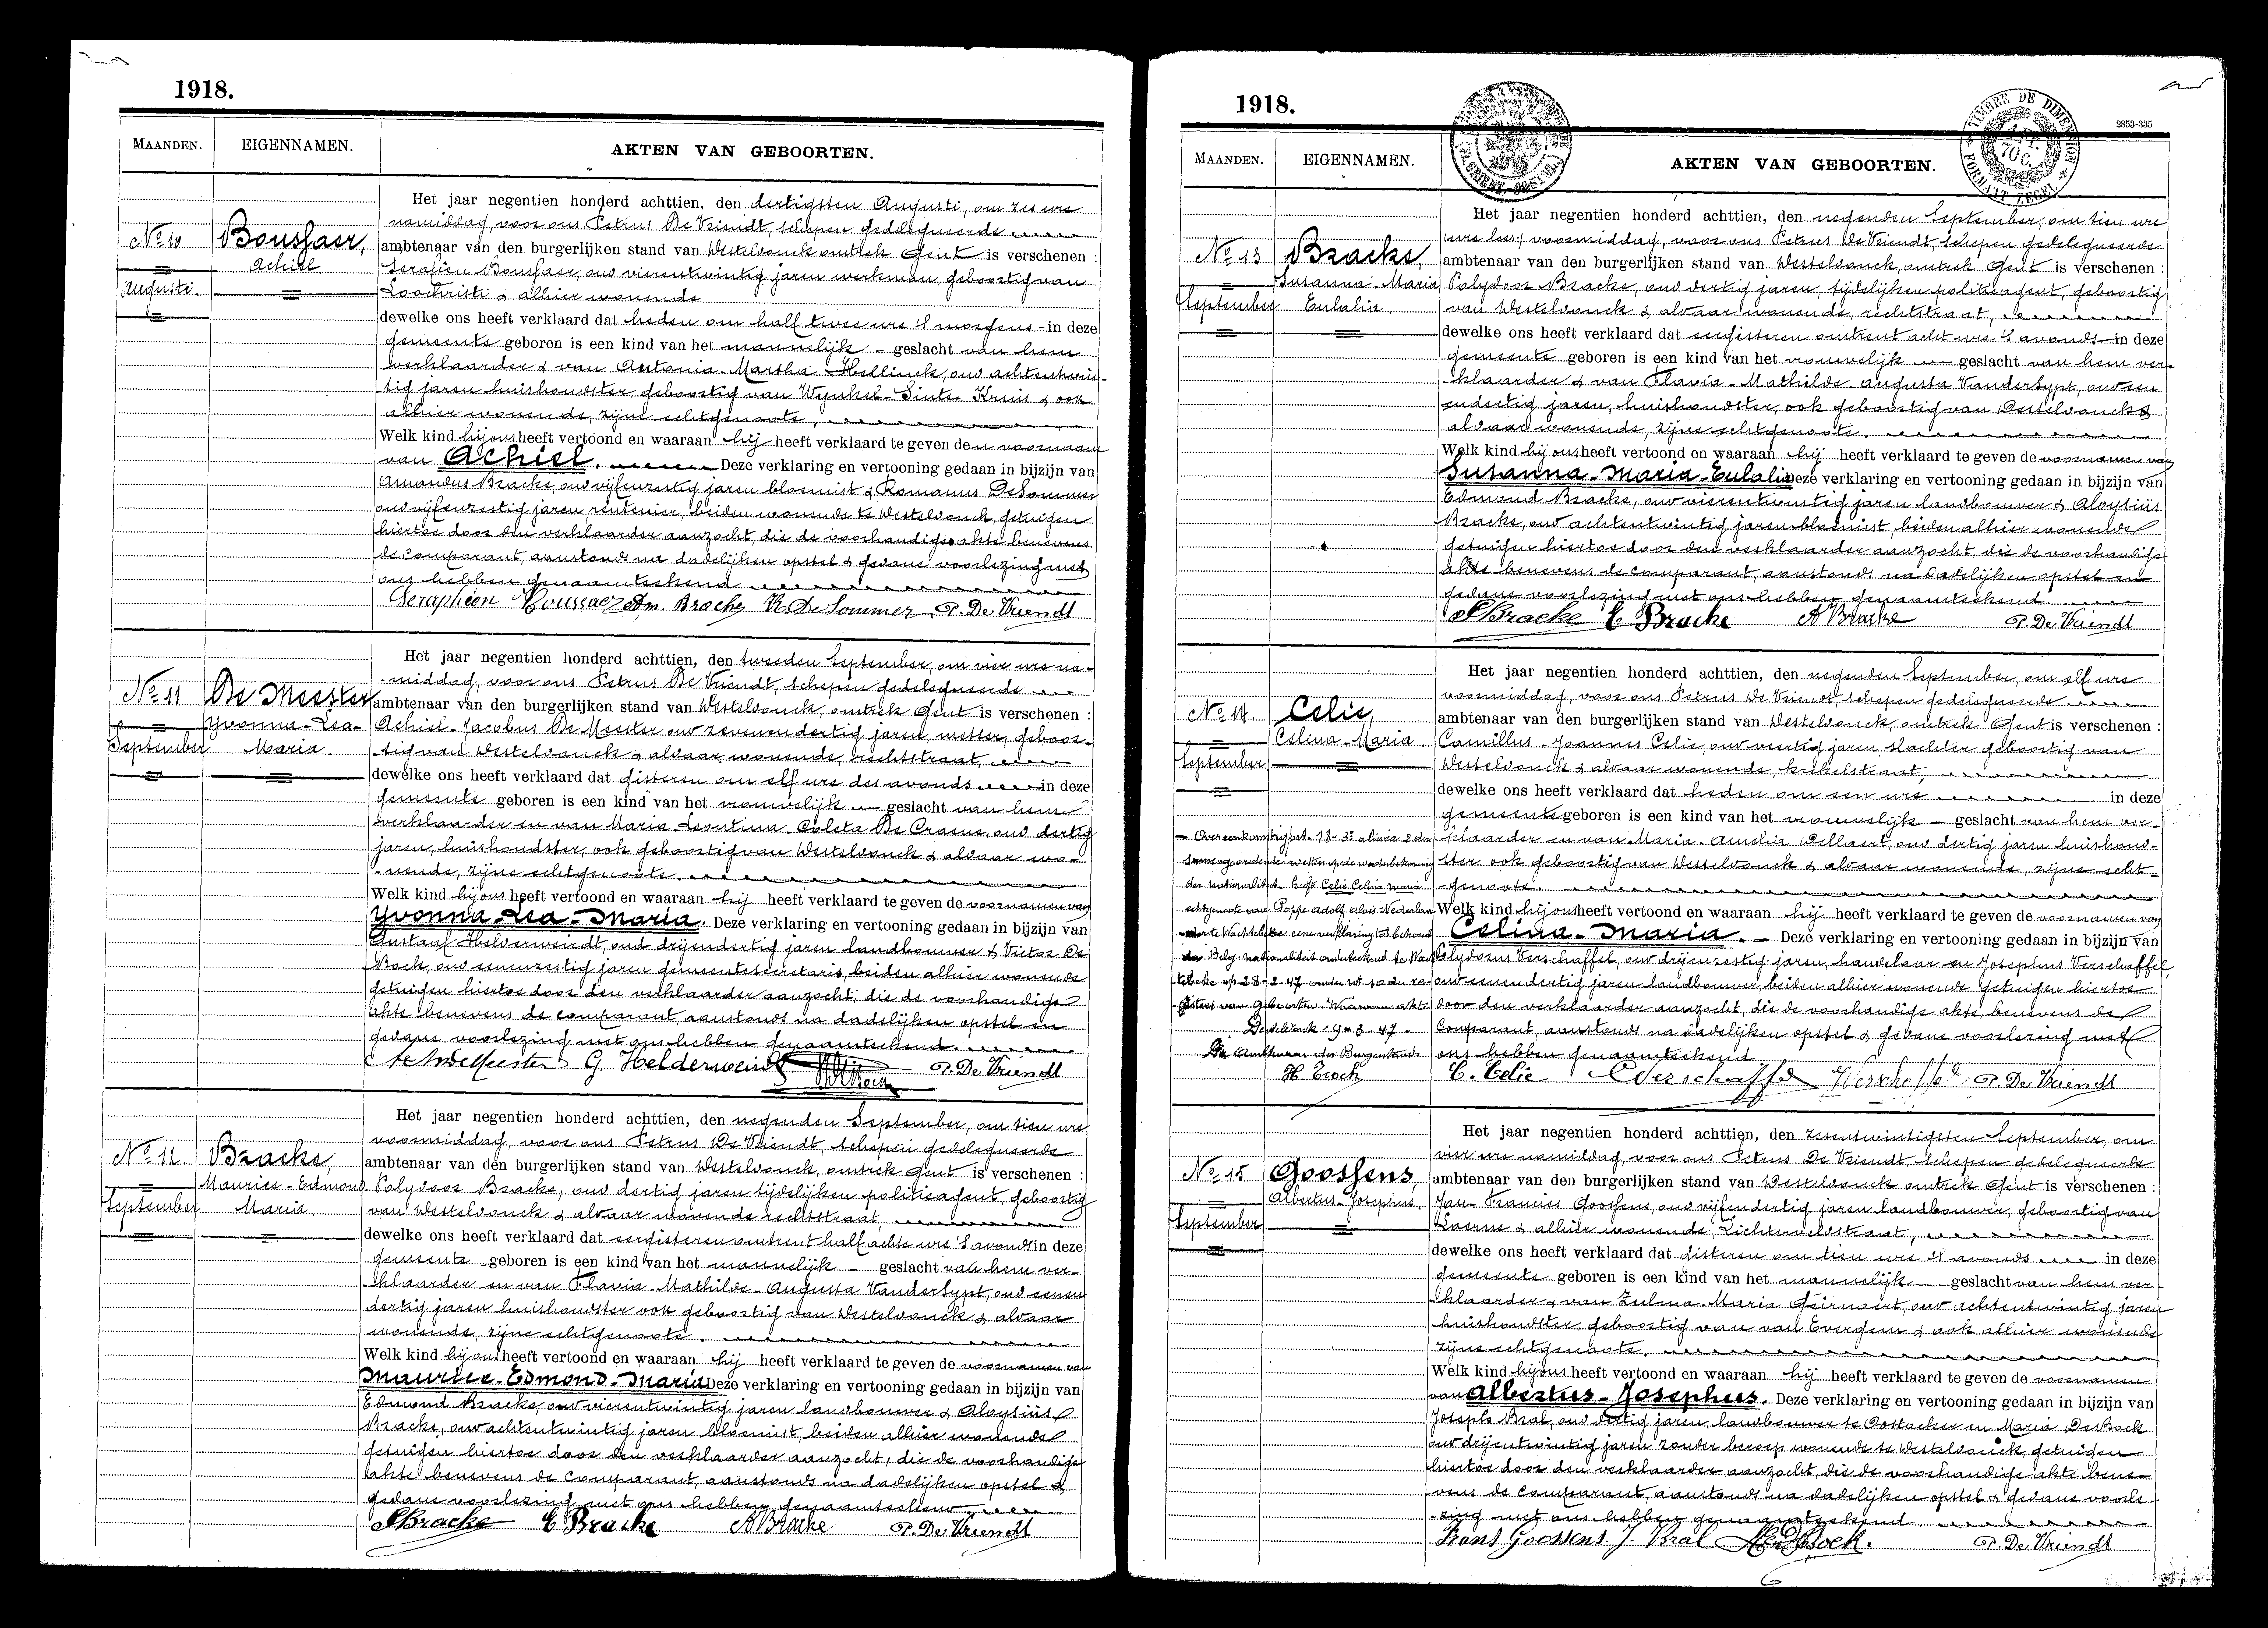 1918.
MAANDEN. EIGENNAMEN. AKTEN VAN GEBOORTEN.
Het jaar negentien honderd achttien, den dertigsten Augusti, om zes ure
namiddag, voor ons Petrus De Vriendt, schepen gedelegueerde
No 10 Boussaer, ambtenaar van den burgerlijken stand van Westelvonck, omtrek Gent is verschenen :
Achiel Serafien Boussaer, oud vierentwintig jaren werkman, geboortig van
Augusti. Loochristi & alhier wonende
dewelke ons heeft verklaard dat heden om half twee ure 's morgens in deze
gemeente geboren is een kind van het mannelijk geslacht van hem
verklaarder & van Antonia-Martha Hellinck, oud achtentwin-
tig jaren huishoudster geboortig van Wynkel-Sinte-Kruis & ook
alhier wonende, zijne echtgenoote,
Welk kind hij ons heeft vertoond en waaraan hij heeft verklaard te geven den voornaam
van Achiel. Deze verklaring en vertooning gedaan in bijzijn van
Amandus Bracke, oud vijfenzestig jaren bloemist & Romanus DeSommer
oud vijfenzestig jaren rentenier, beiden wonende te Westelvonck, getuigen
hiertoe door den verklaarder aanzocht, die de voorhandige akte benevens
de comparant, aanstonds na dadelijken opstel & gedane voorlezing met
ons hebben genaamteekend
Seraphien Boussaer Am. Bracke R. De Sommer P. De Vriendt
Het jaar negentien honderd achttien, den tweeden September, om vier ure na-
middag, voor ons Petrus De Vriendt, schepen gedelegueerde
No 11 De Meester ambtenaar van den burgerlijken stand van Westelvonck, omtrek Gent is verschenen :
Yvonna-Lea- Achiel-Jacobus De Meester oud zevenendertig jaren, metser, geboor-
September Maria tig van Westelvonck & aldaar wonende, rechtstraat,
dewelke ons heeft verklaard dat gisteren om elf ure des avonds in deze
gemeente geboren is een kind van het vrouwelijk geslacht van hem
verklaarder en van Maria-Leontina-Coleta De Craene, oud dertig
jaren, huishoudster, ook geboortig van Westelvonck & aldaar wo-
nende, zijne echtgenoote.
Welk kind hij ons heeft vertoond en waaraan hij heeft verklaard te geven de voornamen van
Yvonna-Lea-Maria. Deze verklaring en vertooning gedaan in bijzijn van
Gustaaf Helderweirdt, oud drijendertig jaren landbouwer & Victor De
Bock, oud eenenzestig jaren gemeentesecretaris, beiden alhier wonende
getuigen hiertoe door den verklaarder aanzocht, die de voorhandige
akte benevens de comparant, aanstonds na dadelijken opstel en
gedane voorlezing met ons hebben genaamteekend.
Ach DeMeester G. Helderweirdt P. De Vriendt
Het jaar negentien honderd achttien, den negenden September, om tien ure
voormiddag, voor ons Petrus De Vriendt, schepen gedelegueerde
No 12 Bracke, ambtenaar van den burgerlijken stand van Westelvonck, omtrek Gent is verschenen :
Maurice-Edmond Polydoor Bracke, oud dertig jaren tijdelijken politieagent, geboortig
September Maria. van Westelvonck & aldaar wonende rechtstraat
dewelke ons heeft verklaard dat eergisteren omtrent half acht ure 's avonds in deze
gemeente geboren is een kind van het mannelijk geslacht van hem ver-
klaarder en van Flavia-Mathilde-Augusta Vandersypt, oud eenen
dertig jaren huishoudster ook geboortig van Westelvonck & aldaar
wonende, zijne echtgenoote.
Welk kind hij ons heeft vertoond en waaraan hij heeft verklaard te geven de voornamen van
Maurice-Edmond-Maria Deze verklaring en vertooning gedaan in bijzijn van
Edmond Bracke, oud vierentwintig jaren landbouwer & Aloysius
Bracke, oud achtentwintig jaren bloemist, beiden alhier wonende
getuigen hiertoe door den verklaarder aanzocht, die de voorhandige
akte benevens de comparant, aanstonds na dadelijken opstel &
gedane voorlezing met ons hebben genaamteekend
PBracke E Bracke A Bracke P. De Vriendt
1918.
TIMBRE DE DIMENSION
FORMAAT ZEGEL
2853-335
MAANDEN. EIGENNAMEN. AKTEN VAN GEBOORTEN.
Het jaar negentien honderd achttien, den negenden September, om tien ure
voormiddag, voor ons Petrus De Vriendt, schepen gedelegueerde
No 13 Bracke, ambtenaar van den burgerlijken stand van Westelvonck, omtrek Gent is verschenen :
Susanna-Maria Polydoor Bracke, oud dertig jaren, tijdelijken politieagent, geboortig
September Eulalia. van Westelvonck & aldaar wonende, rechtstraat,
dewelke ons heeft verklaard dat eergisteren omtrent acht ure 's avonds in deze
gemeente geboren is een kind van het vrouwelijk geslacht van hem ver-
klaarder & van Flavia-Mathilde-Augusta Vandersypt, oud een
endertig jaren, huishoudster, ook geboortig van Westelvonck &
aldaar wonende, zijne echtgenoote.
Welk kind hij ons heeft vertoond en waaraan hij heeft verklaard te geven de voornamen van
Susanna-Maria-Eulalia Deze verklaring en vertooning gedaan in bijzijn van
Edmond Bracke, oud vierentwintig jaren landbouwer & Aloysius
Bracke, oud achtentwintig jaren bloemist, beiden alhier wonende
getuigen hiertoe door den verklaarder aanzocht, die de voorhandige
akte benevens de comparant, aanstonds na dadelijken opstel en
gedane voorlezing met ons hebben genaamteekend.
PBracke E Bracke A Bracke P. De Vriendt
Het jaar negentien honderd achttien, den negenden September, om elf ure
voormiddag, voor ons Petrus De Vriendt, schepen gedelegueerde
No 14 Celie, ambtenaar van den burgerlijken stand van Westelvonck, omtrek Gent is verschenen :
Celina-Maria. Camillus-Joannes Celie, oud veertig jaren, slachter geboortig van
September Westelvonck & aldaar wonende, krekelstraat,
dewelke ons heeft verklaard dat heden om een ure in deze
gemeente geboren is een kind van het vrouwelijk geslacht van hem ver-
klaarder en van Maria-Amelia Pellaert, oud dertig jaren huishoud-
ster ook geboortig van Westelvonck & aldaar wonende, zijne echt-
genoote.
Welk kind hij ons heeft vertoond en waaraan hij heeft verklaard te geven de voornamen van
Celina-Maria. Deze verklaring en vertooning gedaan in bijzijn van
Polydorus Verschaffel, oud drijenzestig jaren, handelaar en Josephus Verschaffel,
oud eenendertig jaren landbouwer, beiden alhier wonende getuigen hiertoe
door den verklaarder aanzocht, die de voorhandige akte, benevens de
Comparant, aanstonds na dadelijken opstel & gedane voorlezing met
ons hebben genaamteekend
Overeenkomstig art. 18-3e alinea 2 der
samengeordende wetten op de wederbekoming
der nationaliteit heeft Celie Celina Maria
echtgenoote van Poppe Adolf Alois Nederlan
der te Wachtebeke eene verklaring tot behoud
der Belg. nationaliteit onderteekend te Wach
tebeke op 28-2-47 onder nr 10 der re
gisters van geboorten. Waarvan akte
Desteldonk 9-3-47-
De Ambtenaar des Burgerstands
C. Celie P Verschaffel J Verschaffel P. De Vriendt
Het jaar negentien honderd achttien, den zesentwintigsten September, om
vier ure namiddag, voor ons Petrus De Vriendt, schepen gedelegueerde
No 15 Goossens ambtenaar van den burgerlijken stand van Westelvonck omtrek Gent is verschenen :
Albertus-Josephus. Jan-Francies Goossens, oud vijfendertig jaren landbouwer, geboortig van
September Laerne & alhier wonende, Lichterveldstraat,
dewelke ons heeft verklaard dat gisteren om tien ure 's avonds in deze
gemeente geboren is een kind van het mannelijk geslacht van hem ver-
klaarder & van Zulma-Maria Geirnaert, oud achtentwintig jaren
huishoudster, geboortig van van Evergem & ook alhier wonende
zijne echtgenoote.
Welk kind hij ons heeft vertoond en waaraan hij heeft verklaard te geven de voornamen
van Albertus-Josephus. Deze verklaring en vertooning gedaan in bijzijn van
Joseph Bral, oud dertig jaren, landbouwer te Oostacker en Maria DeBock
oud drijentwintig jaren zonder beroep wonende te Westelvonck, getuigen
hiertoe door den verklaarder aanzocht, die de voorhandige akte bene-
vens de comparant, aanstonds na dadelijken opstel & gedane voorle-
zing met ons hebben genaamteekend.
Frans Goossens J. Bral M. DeBock. P. De Vriendt